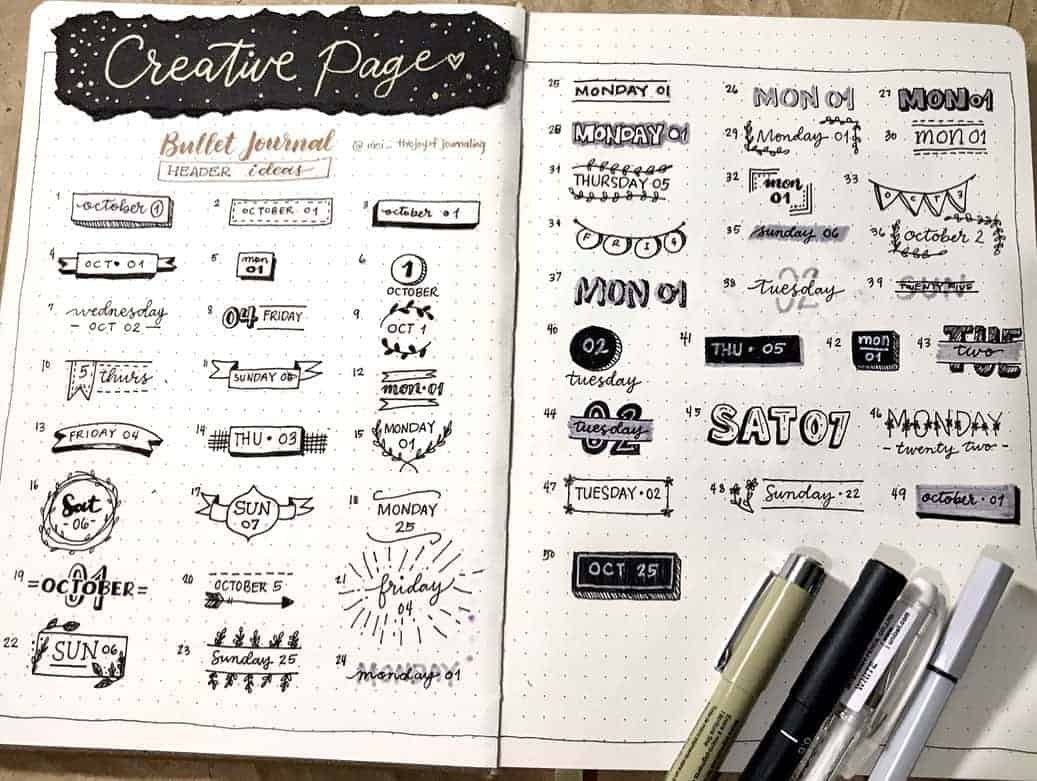 Creative Page
Bullet Journal
@ mei_thejoyofjournaling
HEADER ideas
1 october 1
2 OCTOBER 01
3 october 01
4 OCT 01
5 mon 01
6 1 OCTOBER
7 wednesday
- OCT 02 -
8 04 FRIDAY
9 OCT 1
10 5 thurs
11 SUNDAY 06
12 mon·01
13 FRIDAY 04
14 THU·03
15 MONDAY
01
16 Sat
-06-
17 SUN
07
18 MONDAY
25
19 =OCTOBER=
01
20 OCTOBER 5
21 friday
04
22 SUN 06
23 Sunday 25
24 MONDAY
monday 01
25 MONDAY 01
26 MON 01
27 MON 01
28 MONDAY 01
29 Monday 01
30 mon 01
31 THURSDAY 05
32 mon
01
33 OCT 3
34 FRI 4
35 sunday 06
36 october 2
37 MON 01
38 02
tuesday
39 SUN
TWENTY FIVE
40 02
tuesday
41 THU · 05
42 mon
01
43 TUE
two
44 02
tuesday
45 SAT 07
46 MONDAY
- twenty two -
47 TUESDAY · 02
48 Sunday · 22
49 october · 01
50 OCT 25
WHITE